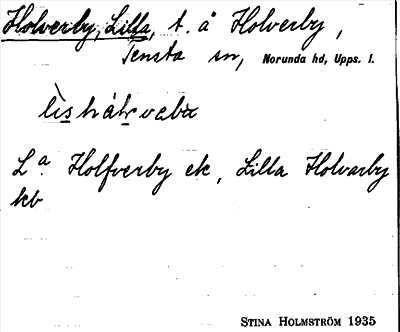 Holverby, Lilla, t. å Holverby,
Tensta sn, Norunda hd, Upps. l.
Lª Holfverby ek, Lilla Holvarby
kb
STINA HOLMSTRÖM 1935